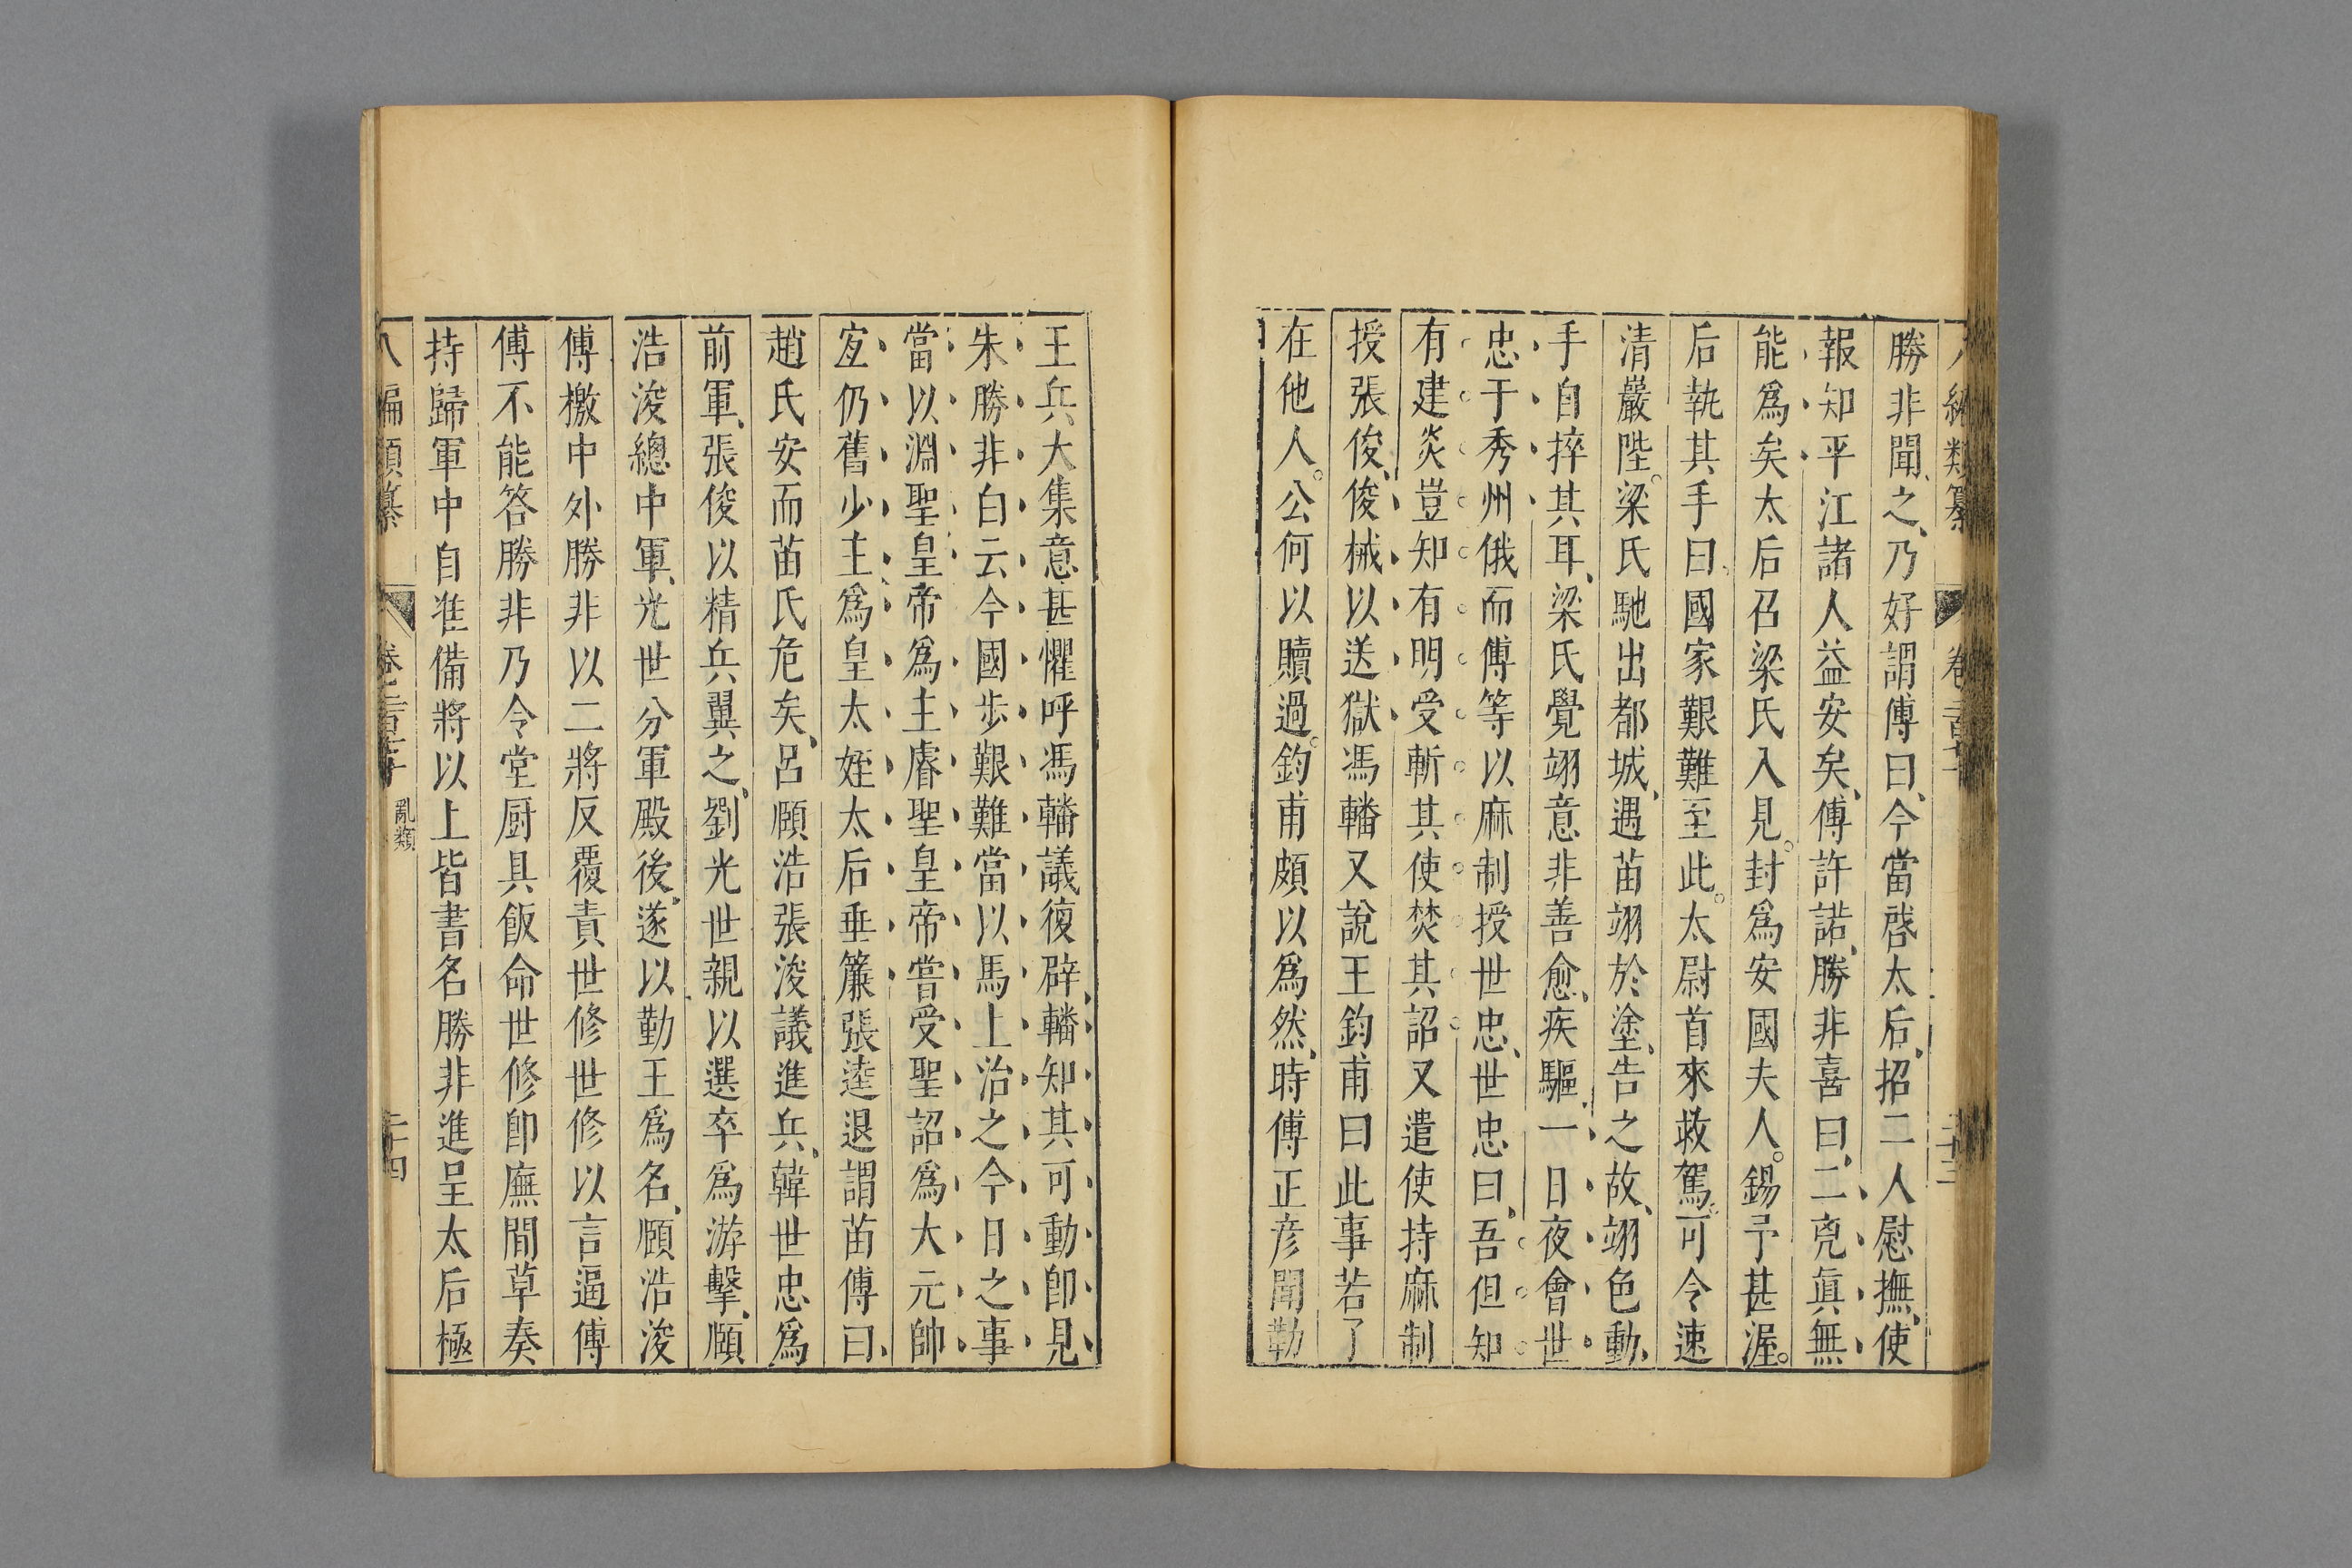 勝非聞之、乃好謂傅曰、今當啓太后、招二人慰撫、使
報知平江諸人益安矣、傅許諾、勝非喜曰、二兇眞無
能爲矣太后召梁氏入見。封爲安國夫人。錫予甚渥。
后執其手曰、國家艱難至此。太尉首來救駕。可令速
清嚴陛。梁氏馳出都城、遇苗翊於塗、告之故、翊色動、
手自捽其耳、梁氏覺翊意非善愈、疾驅、一日夜會世
忠于秀州俄而傅等以麻制授世忠、世忠曰、吾但知
有建炎豈知有明受斬其使焚其詔又遣使持麻制
授張俊、俊械以送獄馮轓又說王鈞甫曰此事若了
在他人。公何以贖過。鈞甫頗以爲然、時傅正彥聞勤
王兵大集意甚懼呼馮轓議復辟、轓知其可動卽見
朱勝非白云今國步艱難當以馬上治之今日之事
當以淵聖皇帝爲主睿聖皇帝嘗受聖詔爲大元帥
宐仍舊少主爲皇太姪太后垂簾張逵退謂苗傅曰、
趙氏安而苗氏危矣、呂頤浩張浚議進兵、韓世忠爲
前軍、張俊以精兵翼之、劉光世親以選卒爲游擊、頤
浩浚總中軍、光世分軍殿後、遂以勤王爲名、頤浩浚
傅檄中外勝非以二將反覆責世修世修以言逼傅
傅不能答勝非乃令堂厨具飯命世修卽廡間草奏
持歸軍中自准備將以上皆書名勝非進呈太后極
八編類纂
亂類
二十四